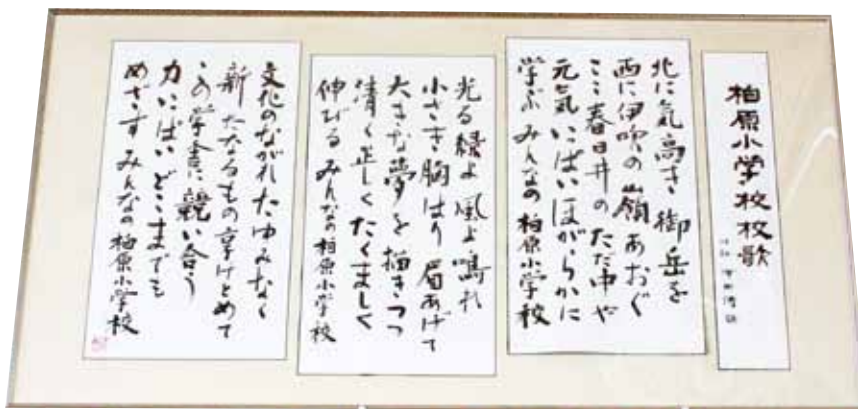 柏原小学校校歌
北に気高き御岳を
西に伊吹の嶺あおぐ
ここ春日井のただ中や
元気いっぱいほがらかに
学ぶみんなの柏原小学校
光る緑よ風よ鳴れ
小さき胸はり眉あげて
大きな夢を描きつつ
清く正しくたくましく
伸びるみんなの柏原小学校
文化のながれたゆみなく
新たなるもの享けとめて
この学舎に競い合う
力いっぱいどこまでも
めざすみんなの柏原小学校